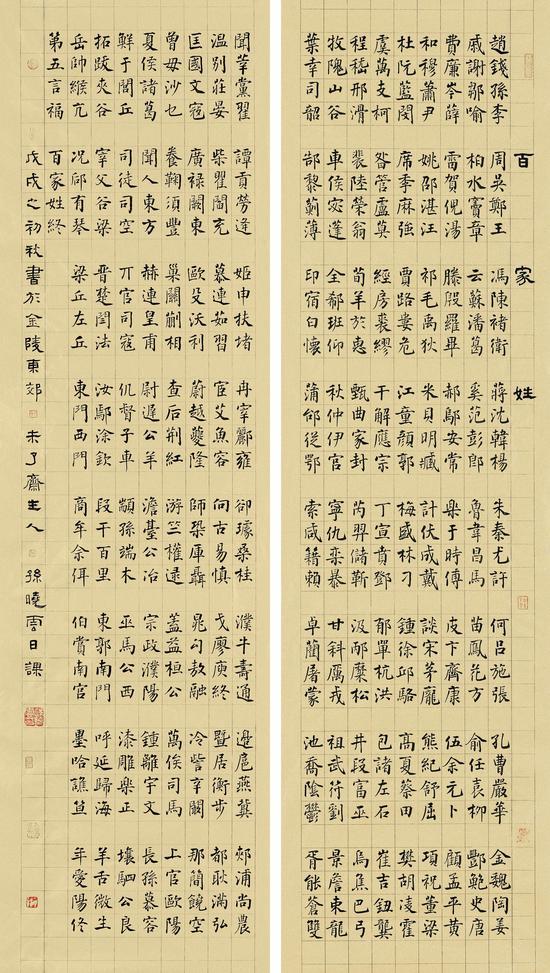 百家姓
趙錢孫李 周吳鄭王 馮陳褚衛 蔣沈韓楊 朱秦尤許 何呂施張 孔曹嚴華 金魏陶姜
戚謝鄒喻 柏水竇章 云蘇潘葛 奚范彭郎 魯韋昌馬 苗鳳花方 俞任袁柳 酆鮑史唐
費廉岑薛 雷賀倪湯 滕殷羅畢 郝鄔安常 樂于時傅 皮卞齊康 伍余元卜 顧孟平黃
和穆蕭尹 姚邵湛汪 祁毛禹狄 米貝明臧 計伏成戴 談宋茅龐 熊紀舒屈 項祝董梁
杜阮藍閔 席季麻強 賈路婁危 江童顏郭 梅盛林刁 鍾徐邱駱 高夏蔡田 樊胡凌霍
虞萬支柯 昝管盧莫 經房裘繆 干解應宗 丁宣賁鄧 郁單杭洪 包諸左石 崔吉鈕龔
程嵇邢滑 裴陸榮翁 荀羊於惠 甄曲家封 芮羿儲靳 汲邴糜松 井段富巫 烏焦巴弓
牧隗山谷 車侯宓蓬 全郗班仰 秋仲伊宮 寧仇欒暴 甘鈄厲戎 祖武符劉 景詹束龍
葉幸司韶 郜黎薊薄 印宿白懷 蒲邰從鄂 索咸籍賴 卓藺屠蒙 池喬陰鬱 胥能蒼雙
聞莘黨翟 譚貢勞逄 姬申扶堵 冉宰酈雍 卻璩桑桂 濮牛壽通 邊扈燕冀 郟浦尚農
溫別莊晏 柴瞿閻充 慕連茹習 宦艾魚容 向古易慎 戈廖庾終 暨居衡步 都耿滿弘
匡國文寇 廣祿闕東 歐殳沃利 蔚越夔隆 師鞏厙聶 晁勾敖融 冷訾辛闞 那簡饒空
曾毋沙乜 養鞠須豐 巢關蒯相 查后荊紅 游竺權逯 蓋益桓公 萬俟司馬 上官歐陽
夏侯諸葛 聞人東方 赫連皇甫 尉遲公羊 澹臺公冶 宗政濮陽 鍾離宇文 長孫慕容
鮮于閭丘 司徒司空 丌官司寇 仉督子車 顓孫端木 巫馬公西 漆雕樂正 壤駟公良
拓跋夾谷 宰父谷梁 晉楚閆法 汝鄢涂欽 段干百里 東郭南門 呼延歸海 羊舌微生
岳帥緱亢 況郈有琴 梁丘左丘 東門西門 商牟佘佴 伯賞南宮 墨哈譙笪 年愛陽佟
第五言福 百家姓終
戊戌之初秋書於金陵東郊 未了齋主人 孫曉雲日課